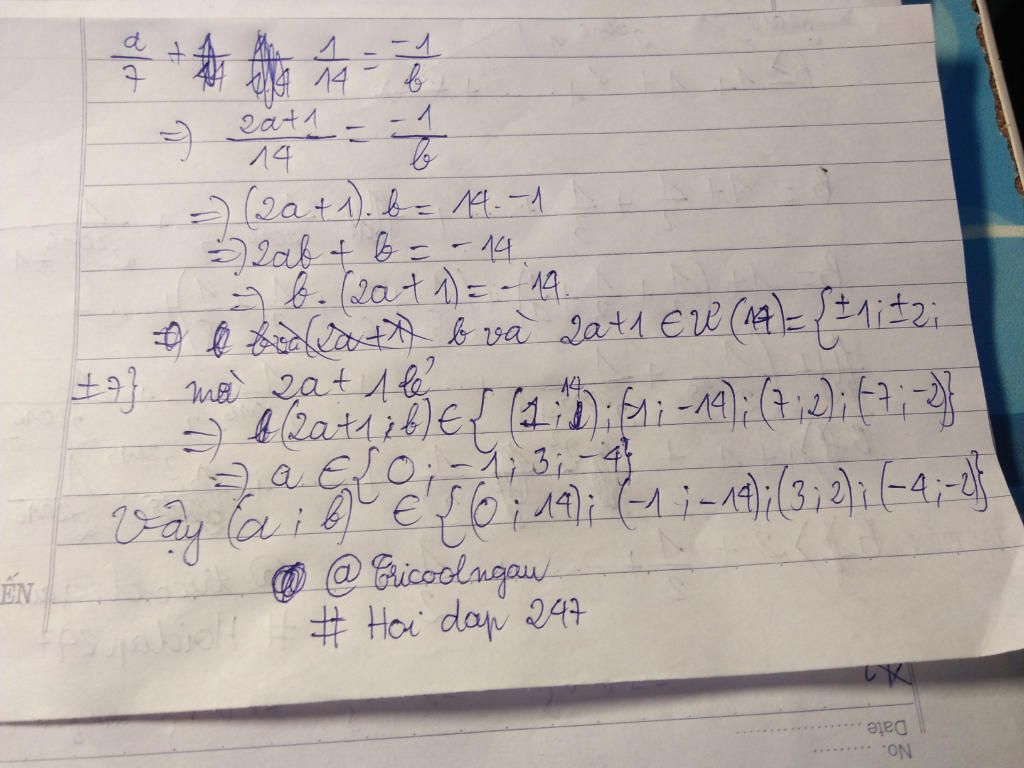 a/7 + 1/14 = -1/b
=> (2a+1)/14 = -1/b
=> (2a+1). b = 14. -1
=> 2ab + b = -14.
=> b. (2a+1) = -14.
b và 2a+1 ∈ Ư (14) = {±1; ±2;
±7} mà 2a+1 lẻ
=> (2a+1; b) ∈ { (1; 14); (-1; -14); (7; 2); (-7; -2)}
=> a ∈ {0; -1; 3; -4}
Vậy (a; b) ∈ {(0; 14); (-1; -14); (3; 2); (-4; -2)}
@Tricoolngau
# Hoi dap 247
ẾN
Date
No.